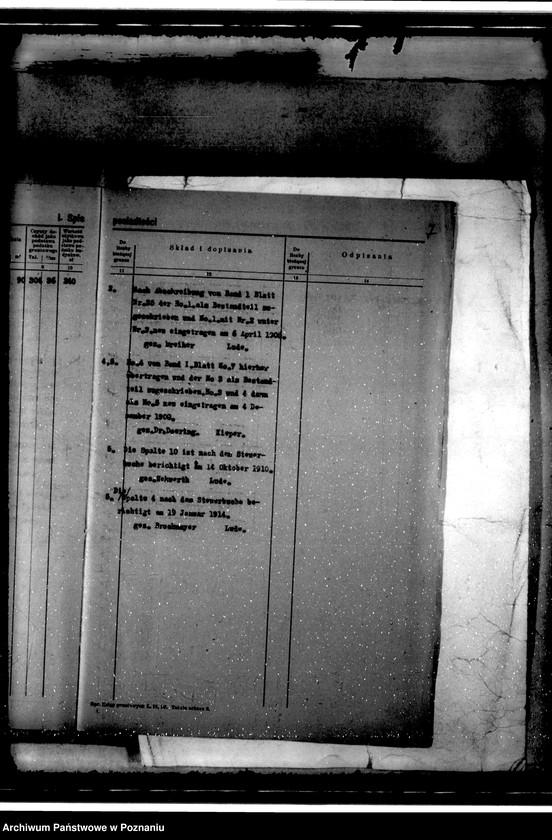 I. Spis
posiadłości
7
Czysty do-
chód jako
podstawa
podatku
gruntowego
Tal. | 1/100
Do
liczby
bieżącej
gruntu
Skład i dopisania
Do
liczby
bieżącej
gruntu
Odpisania
m²
9
10
11
12
13
14
90 306 86 240
2. Nach Abschreibung von Band 1 Blatt
Nr.25 der No.1.als Bestandteil zu-
geschrieben und No.1.mit Nr.2 unter
Nr.3.neu eingetragen am 6 April 190
gez. Lude.
4,5. No.4 von Band 1.Blatt No.7 hierher
übertragen und der No 3 als Bestand-
teil zugeschrieben.No.3 und 4 dann
als No.5 neu eingetragen am 4 De-
zember 1902.
gez.Dr.Doering. Kieper.
5. Die Spalte 10 ist nach dem Steuer-
buche berichtigt am 14 Oktober 1910.
gez. Lude.
Die
5. /Spalte 4 nach dem Steuerbuche be-
richtigt am 19 Januar 1914.
gez. Lude.
Archiwum Państwowe w Poznaniu